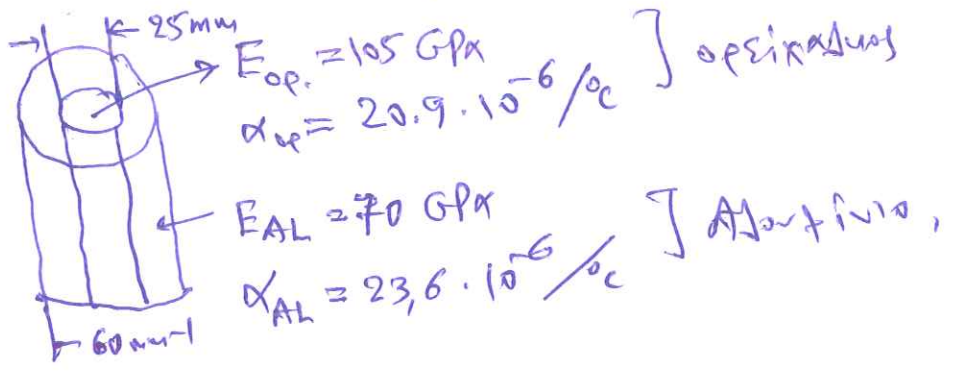 25mm
Eop. = 105 GPα
αop = 20.9 . 10^-6/°C ] ορείχαλκος
EAL = 70 GPα
αAL = 23,6 . 10^-6/°C ] Αλουμίνιο,
60 mm